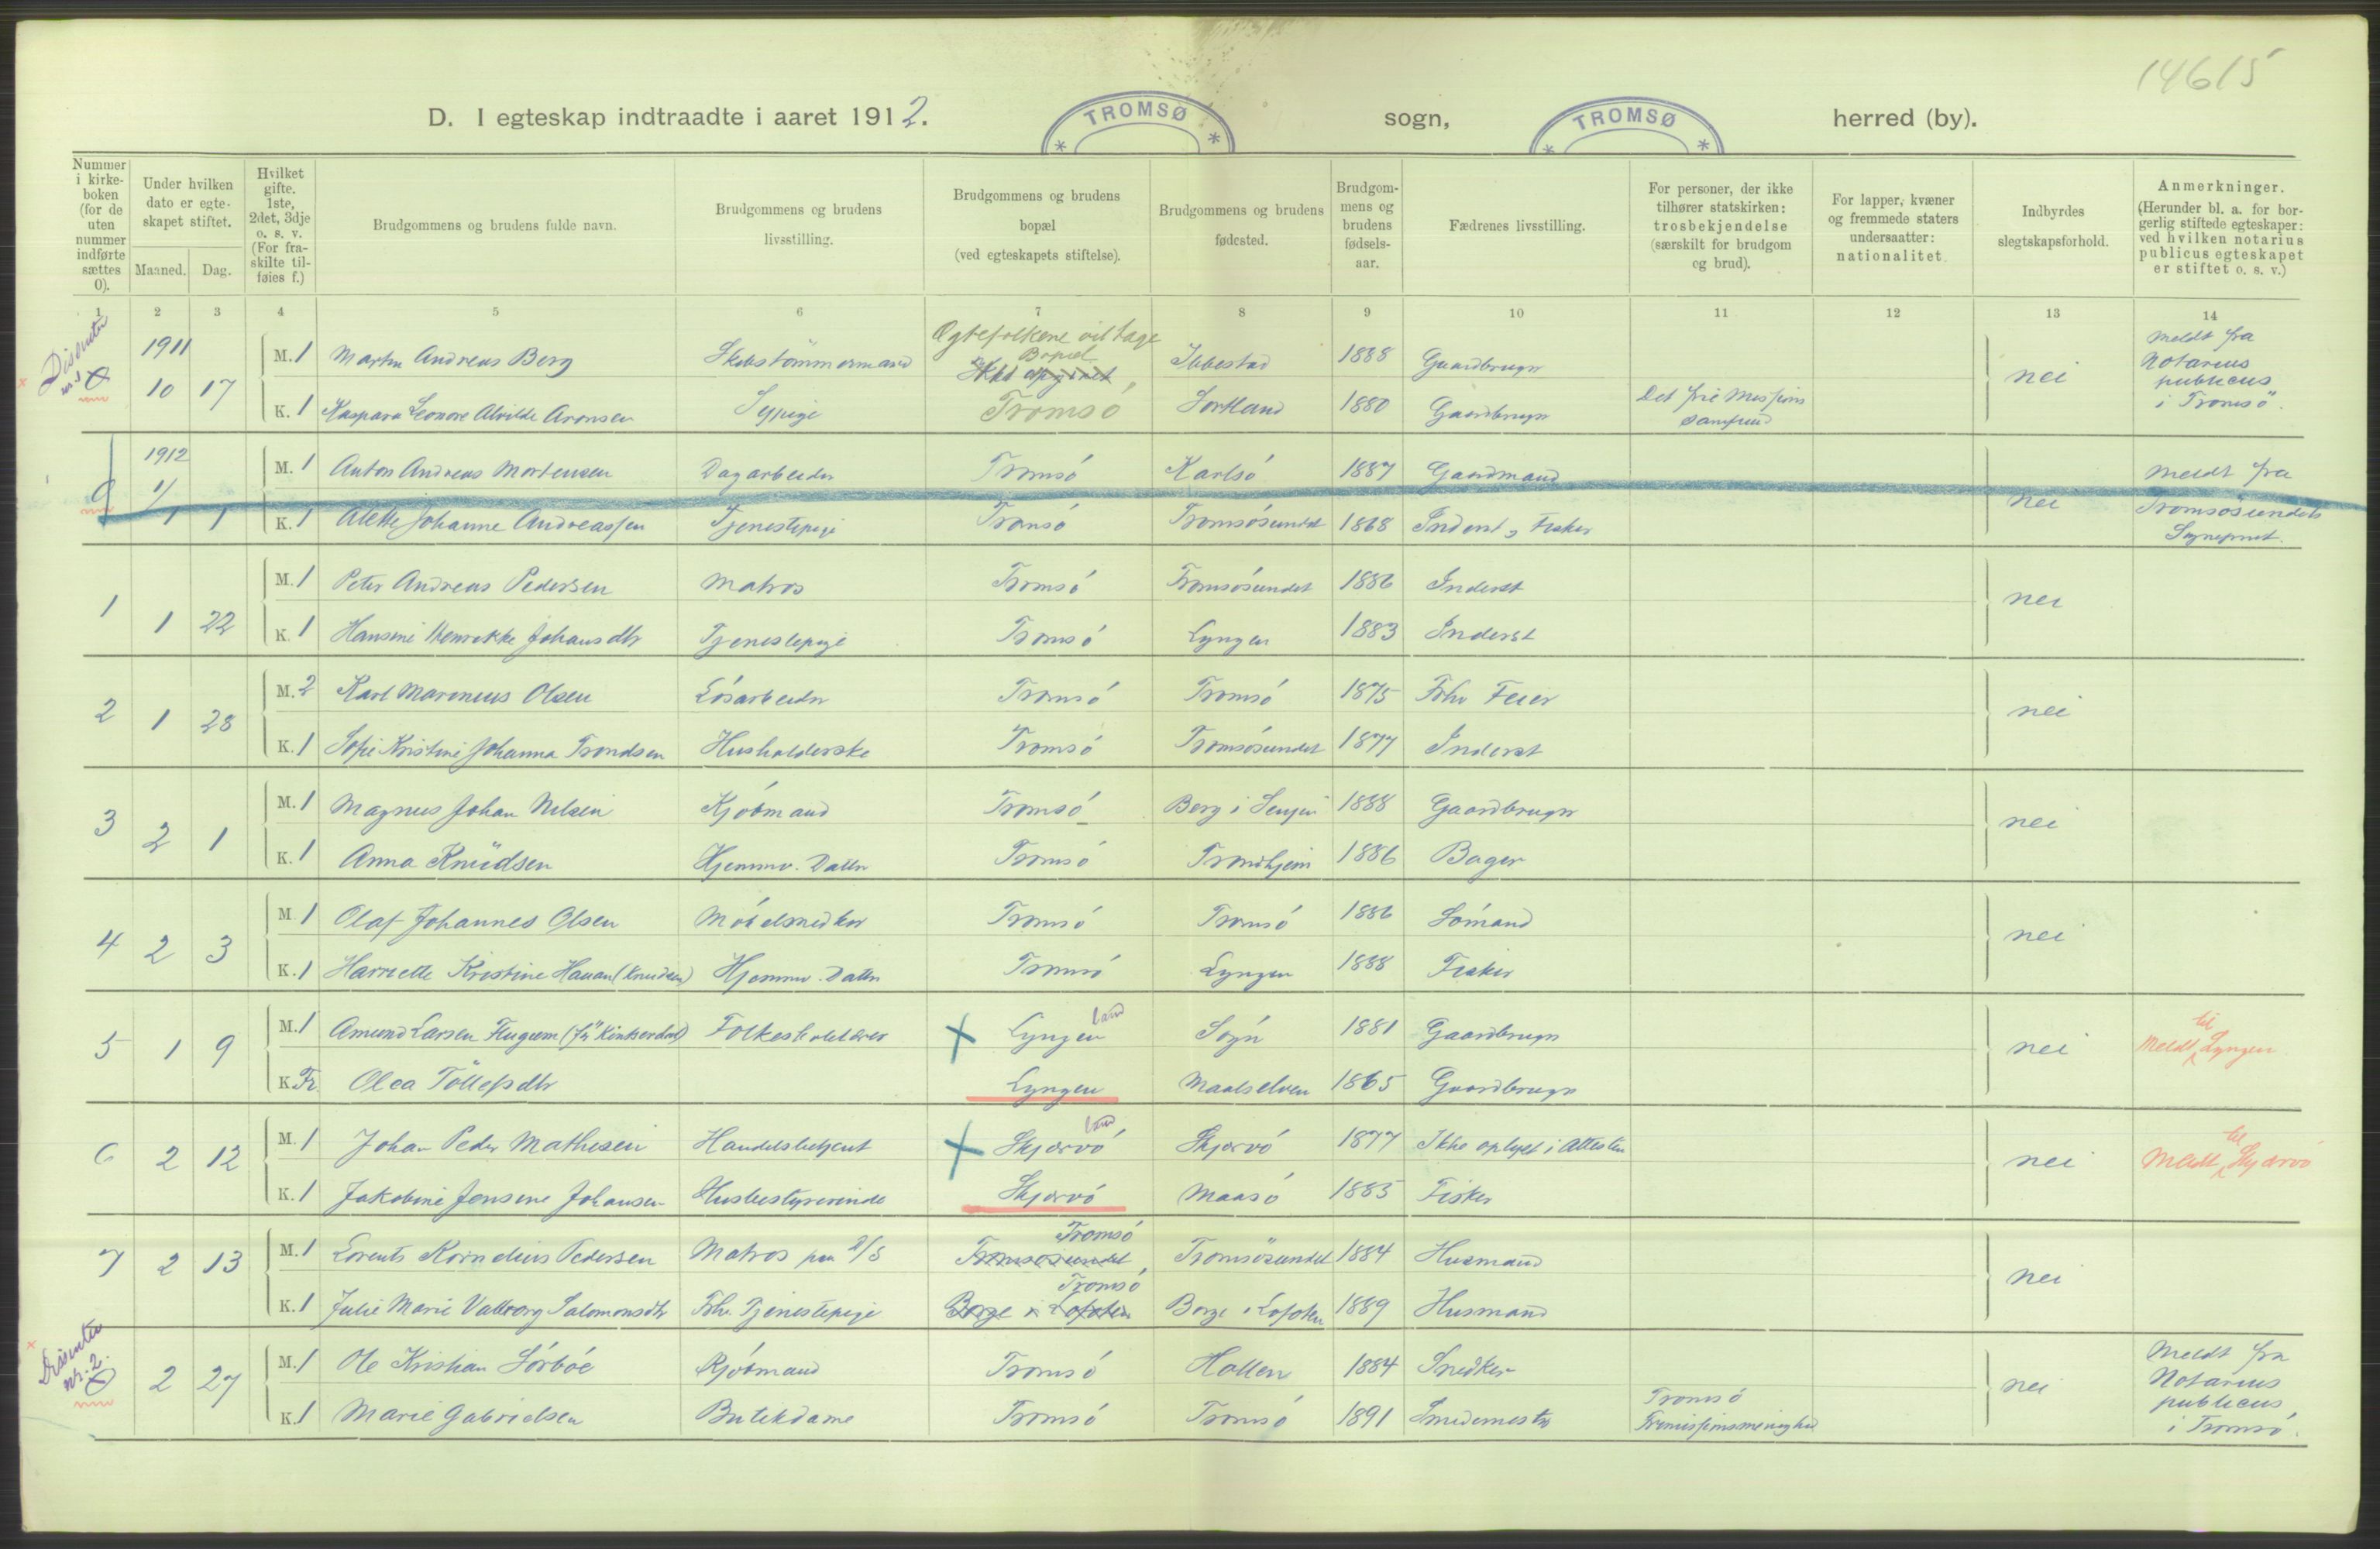 14615
D. I egteskap indtraadte i aaret 1912. TROMSØ sogn, TROMSØ herred (by).
Nummer i kirke-boken (for de uten nummer indførte sættes 0).
Under hvilken dato er egte-skapet stiftet.
Maaned. Dag.
Hvilket gifte. 1ste, 2det, 3dje o. s. v. (For fra-skilte til-føies f.)
Brudgommens og brudens fulde navn.
Brudgommens og brudens livsstilling.
Brudgommens og brudens bopæl (ved egteskapets stiftelse).
Brudgommens og brudens fødested.
Brudgom-mens og brudens fødsels-aar.
Fædrenes livsstilling.
For personer, der ikke tilhører statskirken: trosbekjendelse (særskilt for brudgom og brud).
For lapper, kvæner og fremmede staters undersaatter: nationalitet
Indbyrdes slegtskapsforhold.
Anmerkninger. (Herunder bl. a. for bor-gerlig stiftede egteskaper: ved hvilken notarius publicus egteskapet er stiftet o. s. v.)
1 2 3 4 5 6 7 8 9 10 11 12 13 14
Dissenter nr. 1
1911
10 17
Ægtefolkene vil tage Bopæl
M. 1 Martin Andreas Berg Skibstömmermand Ibbestad 1888 Gaardbruger nei Meldt fra Notarius publicus i Tromsö.
K. 1 Kaspara Leonore Alvilde Aronsen Sypige Tromsó Sortland 1880 Gaardbruger Det frie Missions samfund
1912
M. 1 Anton Andreas Mortensen Dagarbeider Tromsó Karlsó 1887 Gaardmand Meldt fra
0 1 1 K. 1 Alette Johanne Andreassen Tjenestepige Tromsó Tromsósundet 1868 Inderst, Fisker nei Tromsösundets Sognepræst.
M. 1 Peter Andreas Pedersen Matros Tromsó Tromsósundet 1886 Inderst
1 1 22 nei
K. 1 Hansine Henrikke Johansdtr Tjenestepige Tromsó Lyngen 1883 Inderst
M. 2 Karl Marenius Olsen Lósarbeider Tromsó Tromsó 1875 Fhv Feier
2 1 28 nei
K. 1 Sofie Kristine Johanna Trondsen Husholderske Tromsó Tromsósundet 1877 Inderst
M. 1 Magnus Johan Nilsen Kjóbmand Tromsó Berg i Senjen 1888 Gaardbruger
3 2 1 nei
K. 1 Anna Knudsen Hjemmv. Datter Tromsó Trondhjem 1886 Bager
M. 1 Olaf Johannes Olsen Móbelsnedker Tromsó Tromsó 1886 Sómand
4 2 3 nei
K. 1 Harriette Kristine Hauan (Knudsen) Hjemmv. Datter Tromsó Lyngen 1888 Fisker
M. 1 Amund Larsen Folkeskolelærer Lyngen land Sogn 1881 Gaardbruger
5 1 9 nei Meldt til Lyngen
K. Fr. Olea Töllefsdtr Lyngen Maalselven 1865 Gaardbruger
M. 1 Johan Peder Mathisen Handelsbetjent Skjærvó land Skjærvó 1877 Ikke oplyst i Attesten
6 2 12 nei Meldt til Skjærvó
K. 1 Jakobine Jensine Johansen Husbestyrerinde Skjærvó Maasó 1885 Fisker
M. 1 Lorents Kornelius Pedersen Matros paa D/S Tromsósundet Tromsó Tromsösundet 1884 Husmand
7 2 13 nei
K. 1 Julie Marie Valborg Salomonsdtr Fhv. Tjenestepige Borge i Lofoten Tromsó Borge i Lofoten 1889 Husmand
Dissenter nr. 2.
M. 1 Ole Kristian Sórbóe Kjóbmand Tromsó Hollen 1884 Snedker
2 27 nei Meldt fra Notarius publicus i Tromsó.
K. 1 Marie Gabrielsen Butikdame Tromsó Tromsó 1891 Smedemester Tromsó Frimissionsmenighed